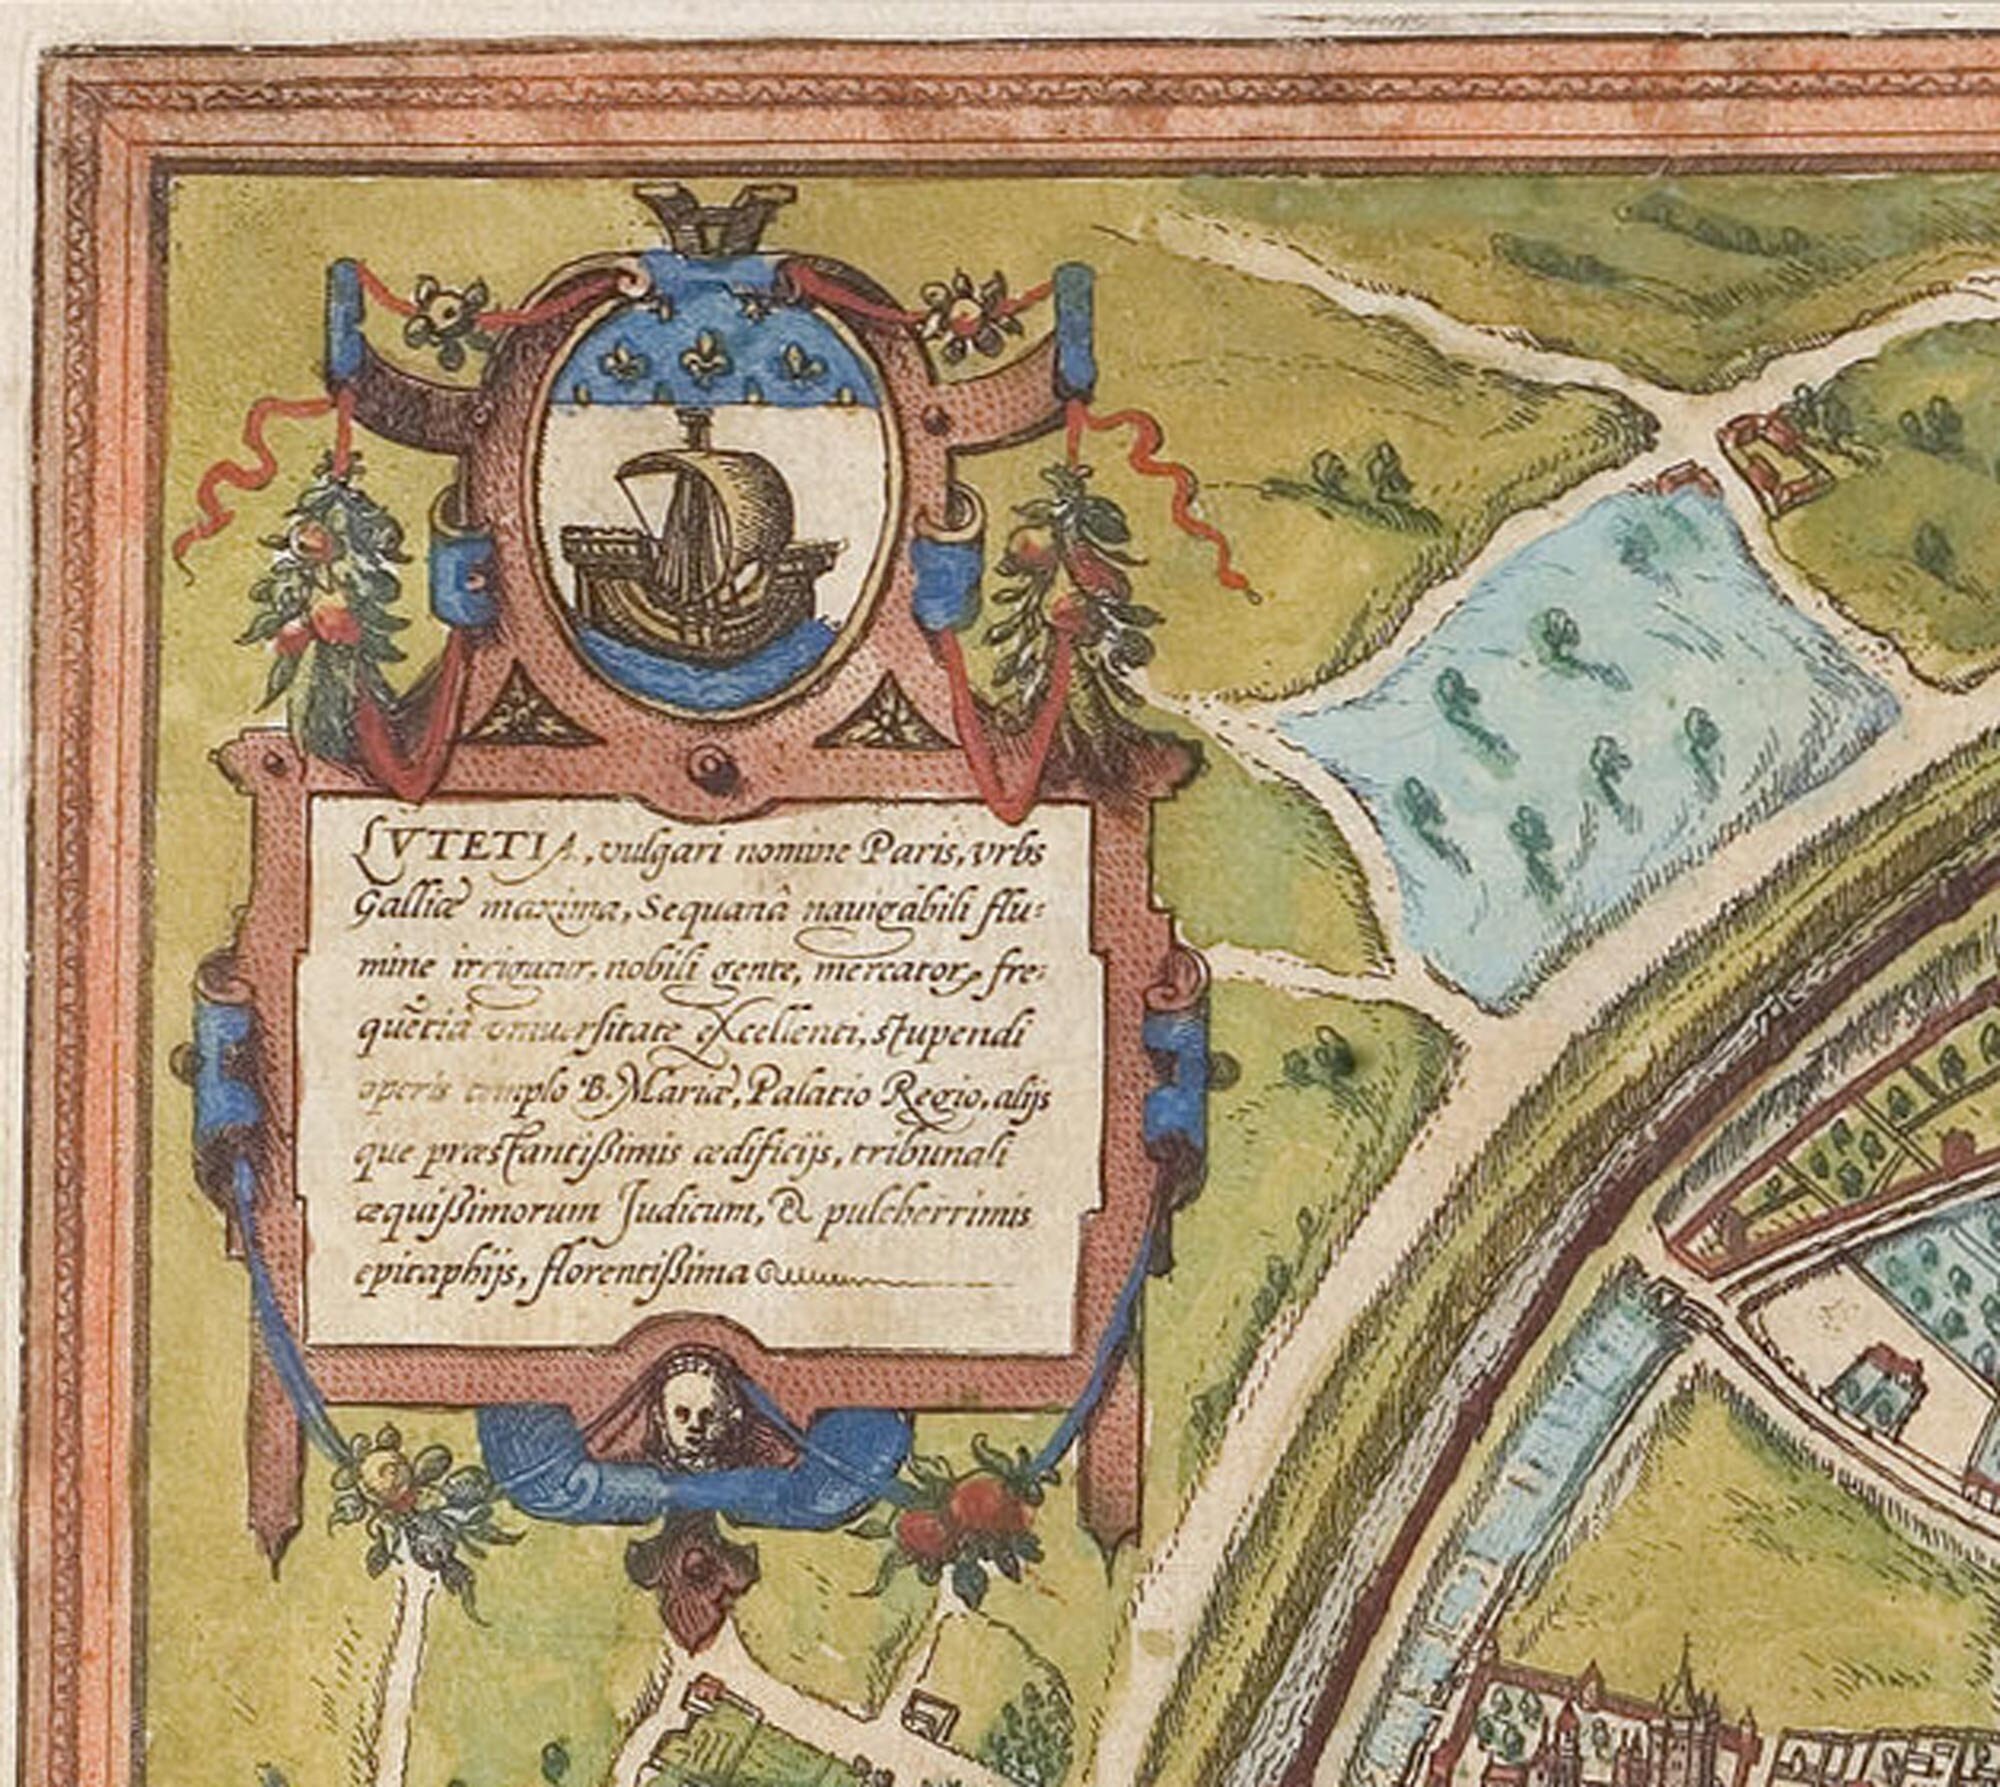 LVTETIA, vulgari nomine Paris, vrbs
Galliæ maxima, Sequanâ nauigabili flu:
mine irrigatur, nobili gente, mercatorũ fre:
quẽtiâ vniuersitate excellenti, stupendi
operis templo B. Mariæ, Palatio Regio, alijs
que præstantißimis ædificijs, tribunali
æquißimorum Judicum, & pulcherrimis
epitaphijs, florentißima